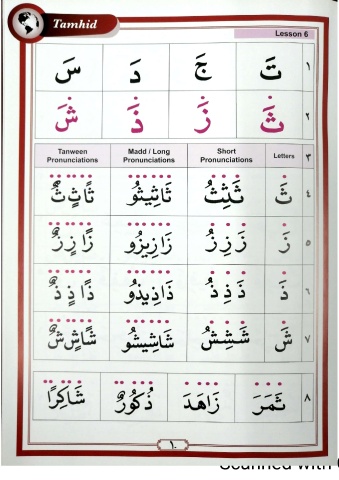 Tamhid
Lesson 6
١ تَ جَ دَ سَ
٢ ثَ زَ ذَ شَ
٣ Letters Short Pronunciations Madd / Long Pronunciations Tanween Pronunciations
٤ ثَ ثَثِثُ ثَاثِيثُو ثًاثٍثٌ
٥ زَ زَزِزُ زَازِيزُو زًا زٍزٌ
٦ ذَ ذَذِذُ ذَاذِيذُو ذًا ذٍذٌ
٧ شَ شَشِشُ شَاشِيشُو شًاشٍشٌ
٨ ثَمَرَ زَاهَدَ ذُكُورٌ شَاكِرًا
١٠
Scanned with